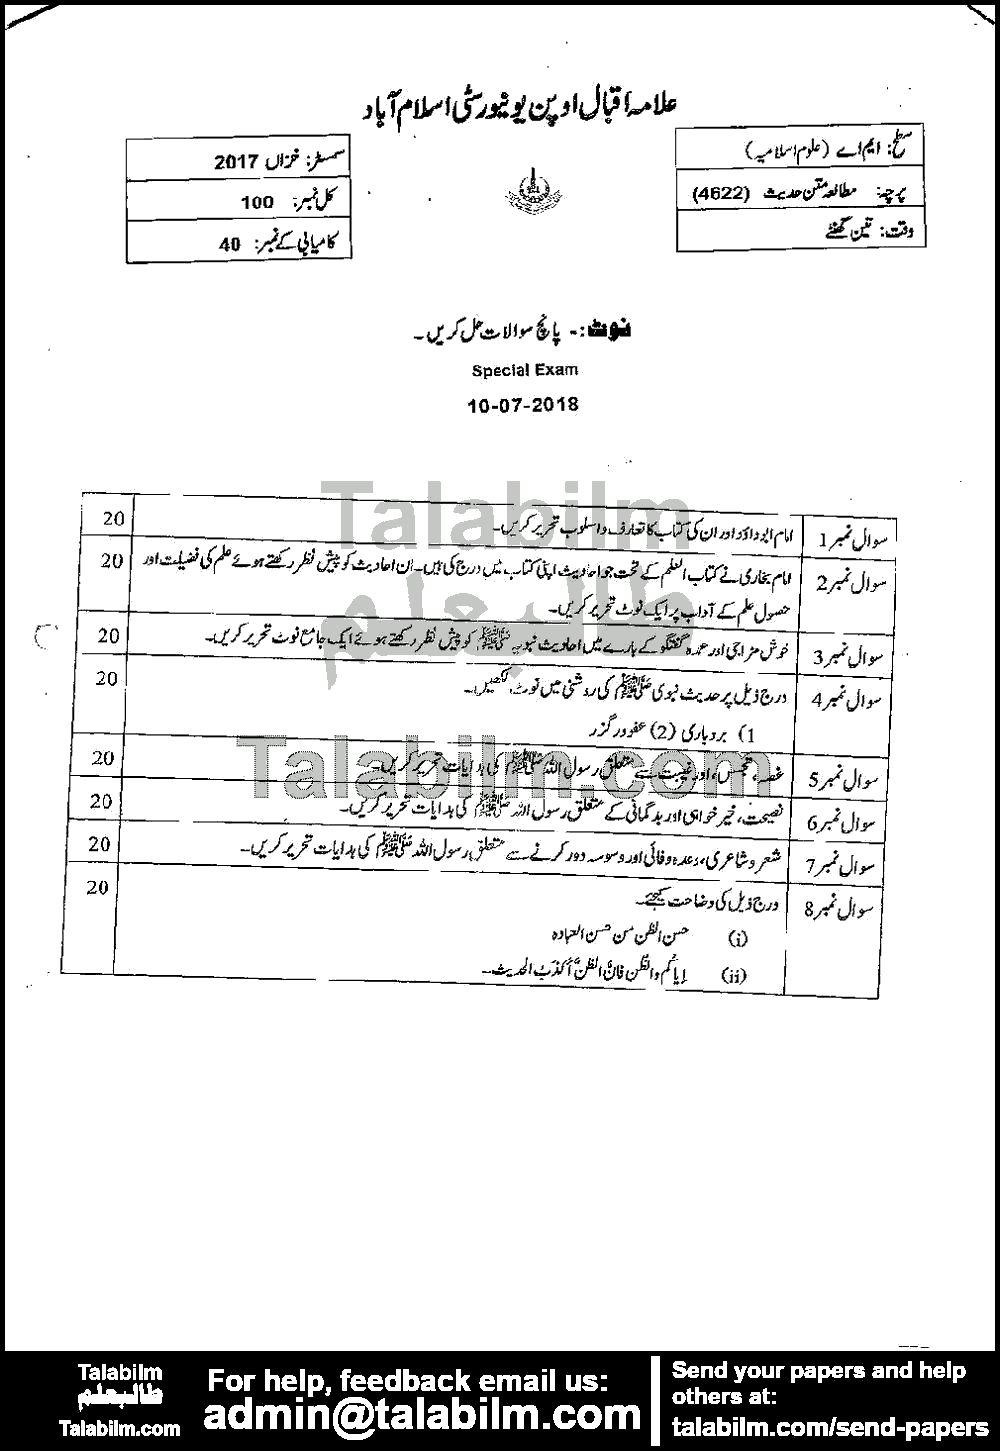 علامہ اقبال اوپن یونیورسٹی اسلام آباد
سطح: ایم اے (علوم اسلامیہ)
پرچہ: مطالعہ متن حدیث (4622)
وقت: تین گھنٹے
سمسٹر: خزاں 2017
کل نمبر: 100
کامیابی کے نمبر: 40
نوٹ:- پانچ سوالات حل کریں۔
Special Exam
10-07-2018
سوال نمبر 1 امام ابوداؤد اور ان کی کتاب کا تعارف و اسلوب تحریر کریں۔ 20
سوال نمبر 2 امام بخاری نے کتاب العلم کے تحت جو احادیث اپنی کتاب میں درج کی ہیں۔ ان احادیث کو پیش نظر رکھتے ہوئے علم کی فضیلت اور 20
حصول علم کے آداب پر ایک نوٹ تحریر کریں۔
سوال نمبر 3 خوش مزاجی اور عمدہ گفتگو کے بارے میں احادیث نبویہ ﷺ کو پیش نظر رکھتے ہوئے ایک جامع نوٹ تحریر کریں۔ 20
سوال نمبر 4 درج ذیل پر حدیث نبوی ﷺ کی روشنی میں نوٹ لکھیں۔ 20
1) بردباری (2) عفوودرگزر
سوال نمبر 5 غصہ، تجسس، اور غیبت سے متعلق رسول اللہ ﷺ کی ہدایات تحریر کریں۔ 20
سوال نمبر 6 نصیحت، خیر خواہی اور بدگمانی کے متعلق رسول اللہ ﷺ کی ہدایات تحریر کریں۔ 20
سوال نمبر 7 شعر و شاعری، وعدہ وفائی اور وسوسہ دور کرنے سے متعلق رسول اللہ ﷺ کی ہدایات تحریر کریں۔ 20
سوال نمبر 8 درج ذیل کی وضاحت کیجئے۔ 20
(i) حسن الظن من حسن العبادہ
(ii) إیاکم والظن فإنّ الظنّ أکذبُ الحدیث۔
Talabilm
طالبعلم
Talabilm.com
Talabilm
طالبعلم
Talabilm.com
For help, feedback email us:
admin@talabilm.com
Send your papers and help
others at:
talabilm.com/send-papers